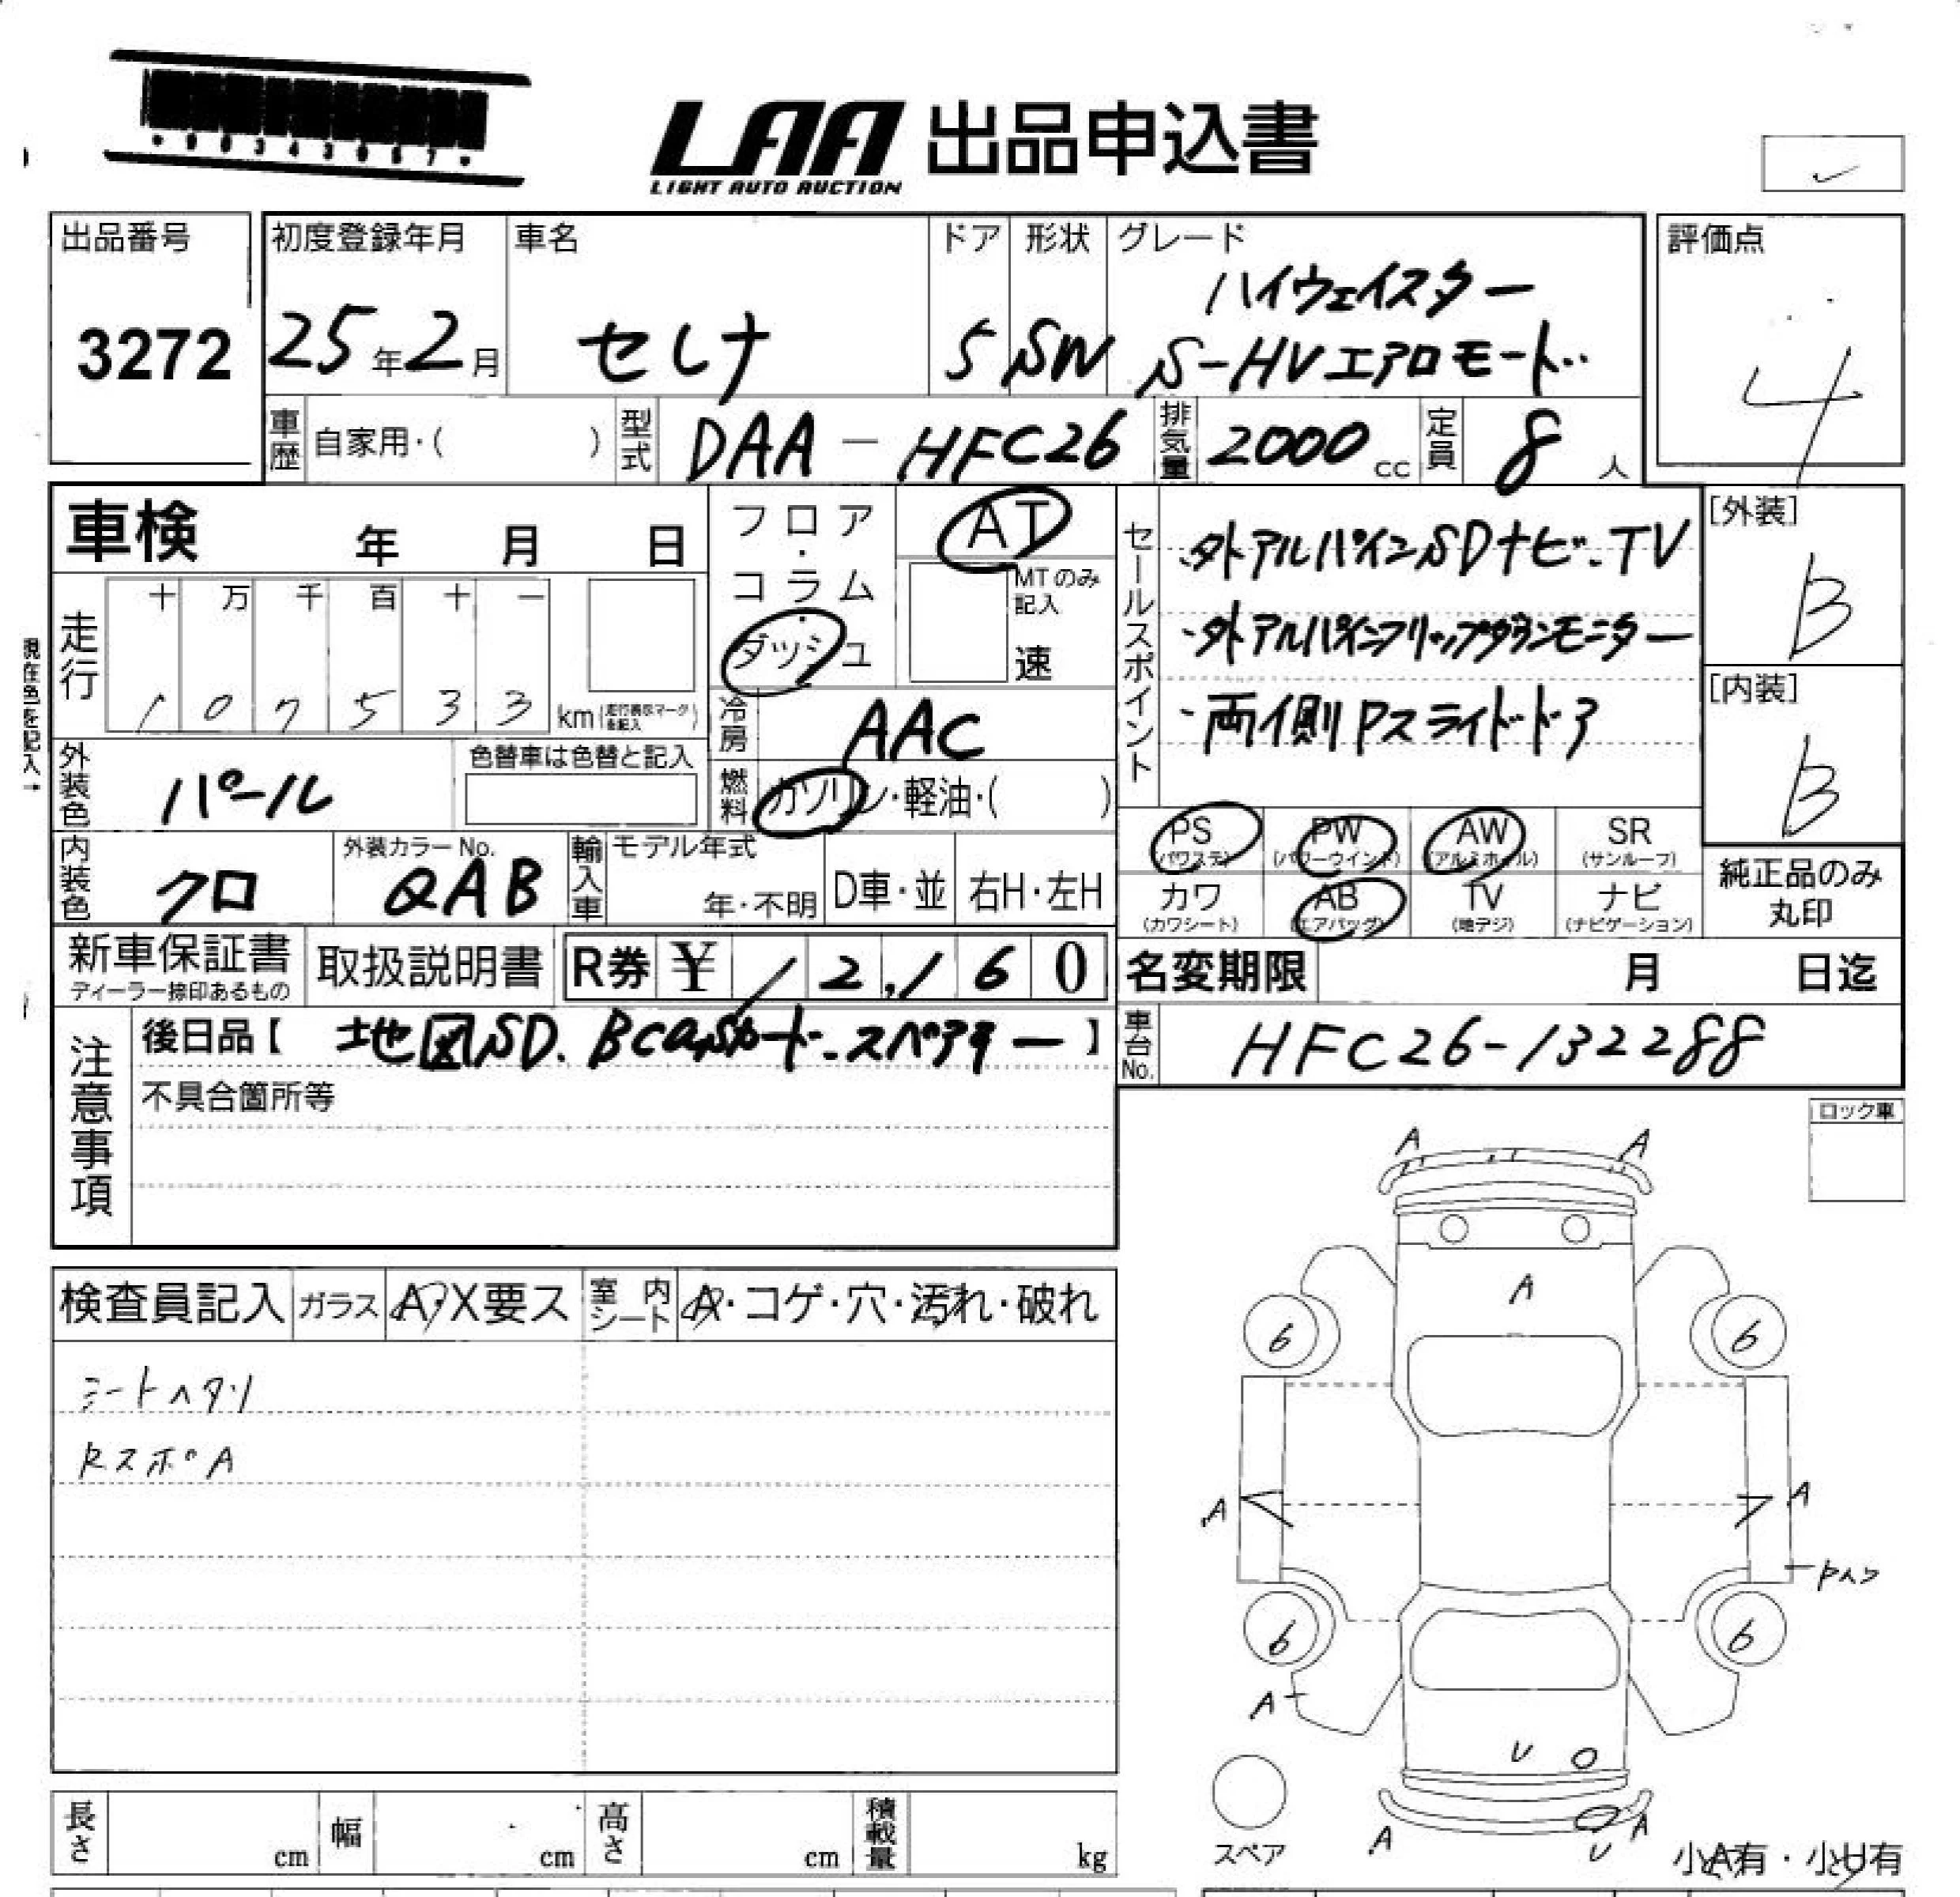 LAA 出品申込書
LIGHT AUTO AUCTION
出品番号
3272
初度登録年月
25年2月
車名
セレナ
ドア
5
形状
SW
グレード
ハイウェイスター
S-HVエアロモード
評価点
4
車歴 自家用・( )
型式 DAA-HFC26
排気量 2000 cc
定員 8 人
車検 年 月 日
フロア・コラム・ダッシュ
AT
MTのみ記入
速
セールスポイント
・外アルパインSDナビ・TV
・外アルパインフリップダウンモニター
・両側Pスライドドア
[外装]
B
[内装]
B
走行
十 万 千 百 十 一
1 0 7 5 3 3 km (走行表示マークを記入)
現在色を記入→
冷房 AAC
外装色 パール
色替車は色替と記入
燃料 ガソリン・軽油・( )
PS (パワステ)
PW (パワーウインド)
AW (アルミホイル)
SR (サンルーフ)
カワ (カワシート)
AB (エアバッグ)
TV (地デジ)
ナビ (ナビゲーション)
純正品のみ丸印
内装色 クロ
外装カラーNo. QAB
輸入車 モデル年式
年・不明
D車・並
右H・左H
新車保証書
ディーラー捺印あるもの
取扱説明書
R券 ¥ 12,160
名変期限 月 日迄
車台No. HFC26-132288
注意事項
後日品【 地図SD. Bcasカード.スペアキー 】
不具合箇所等
ロック車
検査員記入
ガラス A・X要ス
室内シート A・コゲ・穴・汚れ・破れ
シートヘタリ
RスポA
A A
A
6 6
A A
6 6
A
U
A U A
スペア
小A有・小U有
長さ cm
幅 cm
高さ cm
積載量 kg